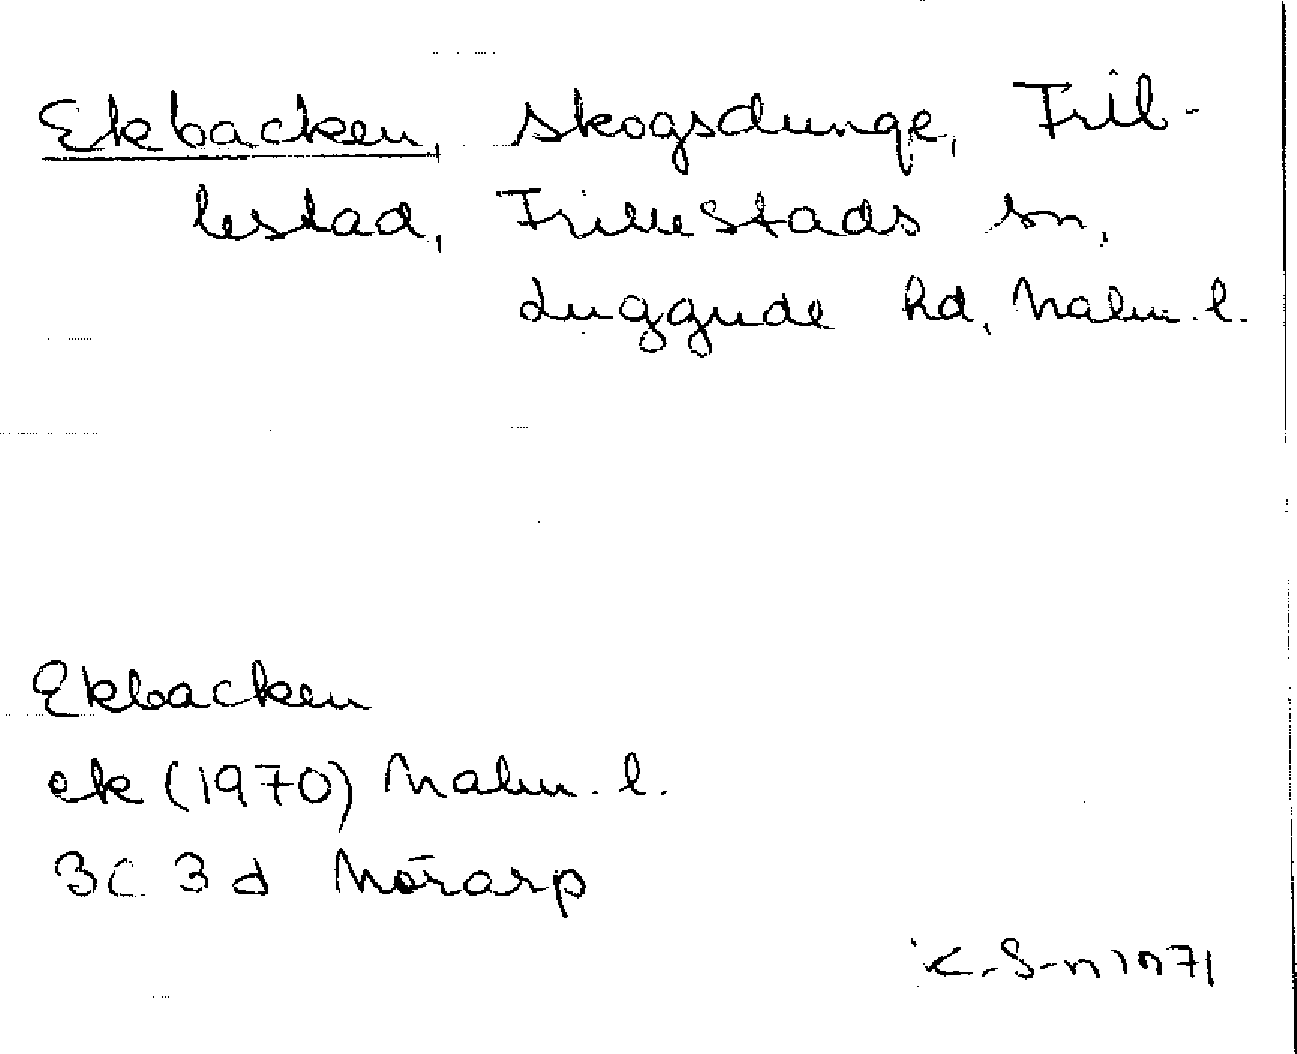 Ekbacken, skogsdunge, Fril-
lestad, Frillestads sn,
Luggude hd, Malm. l.
Ekbacken
ek (1970) Malm. l.
3C 3d Mörarp
K. S-n 1971